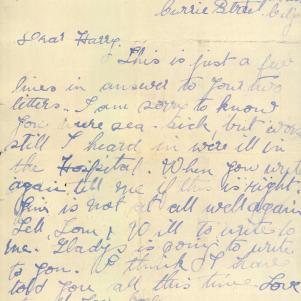 Currie Street. City
Dear Harry.
This is just a few
lines in answer to your two
letters. I am sorry to know
you were sea-sick, but
still I heard in were ill in
the Hospital. When you write
again tell me if this is right.
is not at all well again
Tell, Tom, & Will to write to
me. Gladys is going to write
to you. I think I have
told you all this time. Love